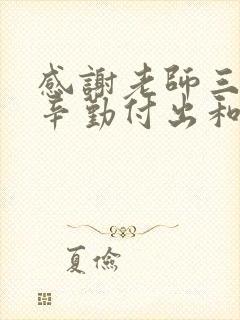 感謝老師三
辛勤付出和
夏儉